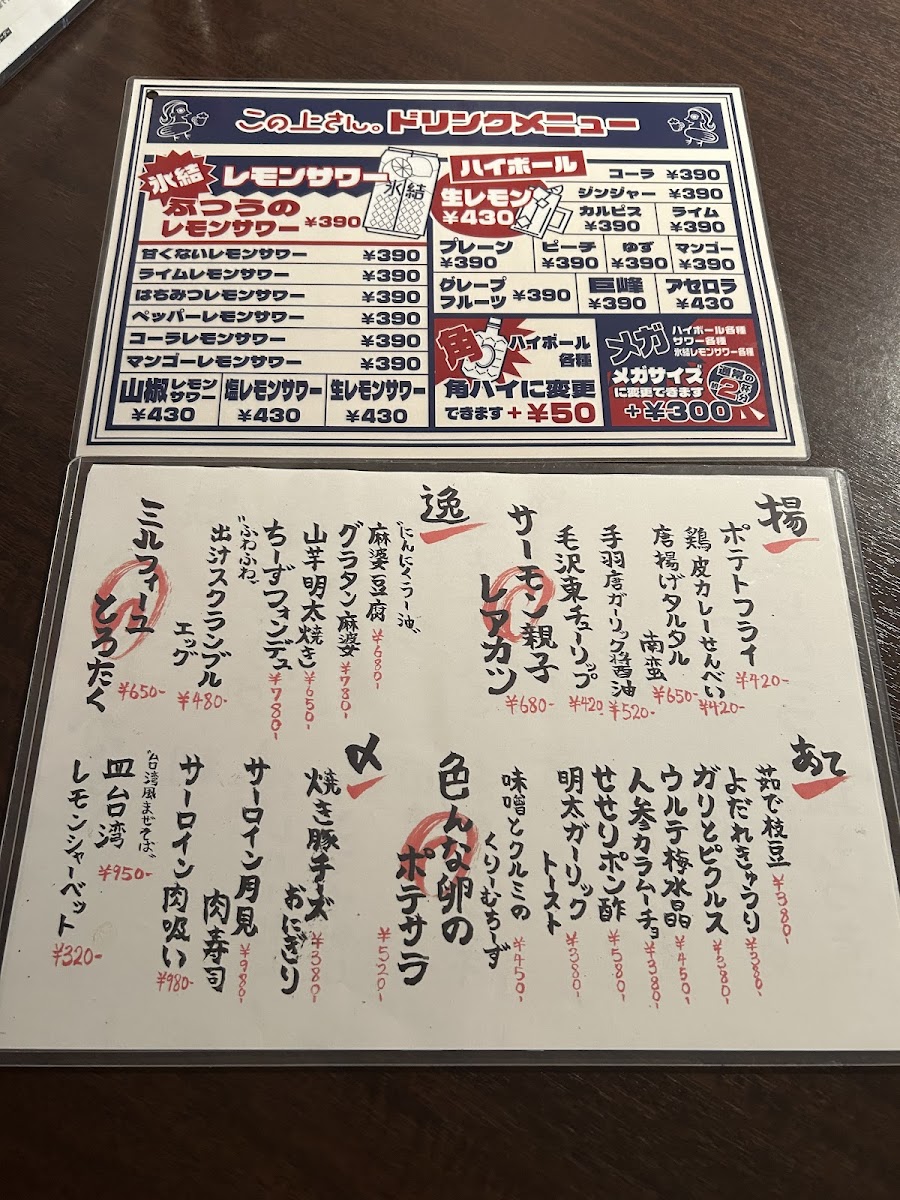 この上さん。ドリンクメニュー
氷結 レモンサワー
氷結
ふつうの
レモンサワー ¥390
甘くないレモンサワー ¥390
ライムレモンサワー ¥390
はちみつレモンサワー ¥390
ペッパーレモンサワー ¥390
コーラレモンサワー ¥390
マンゴーレモンサワー ¥390
山椒レモンサワー ¥430
塩レモンサワー ¥430
生レモンサワー ¥430
ハイボール
生レモン ¥430
コーラ ¥390
ジンジャー ¥390
カルピス ¥390
ライム ¥390
プレーン ¥390
ピーチ ¥390
ゆず ¥390
マンゴー ¥390
グレープフルーツ ¥390
巨峰 ¥390
アセロラ ¥430
角 ハイボール各種
角ハイに変更
できます +¥50
メガ ハイボール各種
サワー各種
氷結レモンサワー各種
メガサイズ
に変更できます
+¥300
通常の
約2杯分
揚
ポテトフライ ¥420-
鶏皮カレーせんべい ¥420-
唐揚げタルタル南蛮 ¥650-
手羽唐ガーリック醤油 ¥520-
毛沢東チューリップ ¥420
サーモン親子
の
レアカツ ¥680-
逸
"にんにくラー油"
麻婆豆腐 ¥680-
グラタン麻婆 ¥780-
山芋明太焼き ¥650-
ちーずフォンデュ ¥780-
"ふわふわ"
出汁スクランブル
エッグ ¥480-
ミルフィーユ
の
とろたく ¥650-
あて
茹で枝豆 ¥380-
よだれきゅうり ¥380-
ガリとピクルス ¥380-
ウルテ梅水晶 ¥450-
人参カラムーチョ ¥380-
せせりポン酢 ¥580-
明太ガーリック
トースト ¥380-
味噌とクルミの
くりーむちーず ¥450-
色んな卵の
の
ポテサラ ¥520-
〆
焼き豚チーズ
おにぎり ¥380-
サーロイン月見
肉寿司 ¥980-
サーロイン肉吸い ¥980-
"台湾風まぜそば"
皿台湾 ¥950-
レモンシャーベット ¥320-